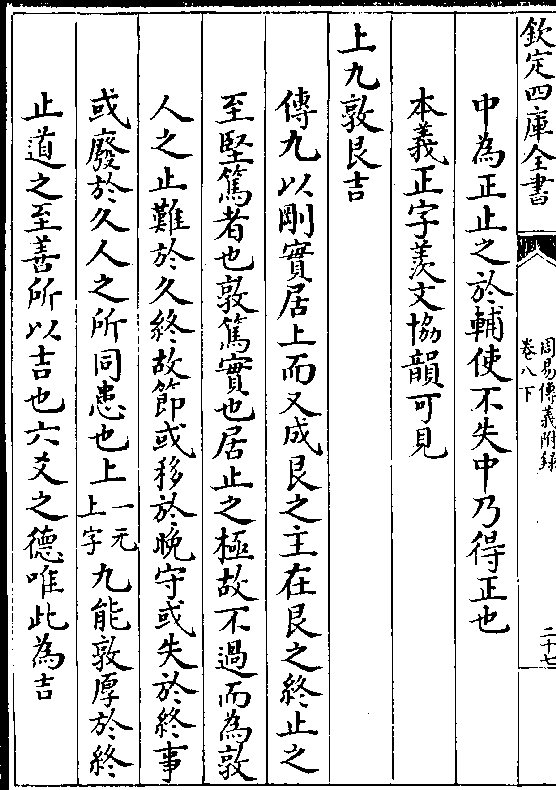 欽定四庫全書
周易傳義附録
卷八下
二十七
中為正止之於輔使不失中乃得正也
本義正字羨文協韻可見
上九敦艮吉
傳九以剛實居上而又成艮之主在艮之終止之
至堅篤者也敦篤實也居止之極故不過而為敦
人之止難於久終故節或移於晚守或失於終事
或廢於久人之所同患也上一元上字九能敦厚於終
止道之至善所以吉也六爻之德唯此為吉